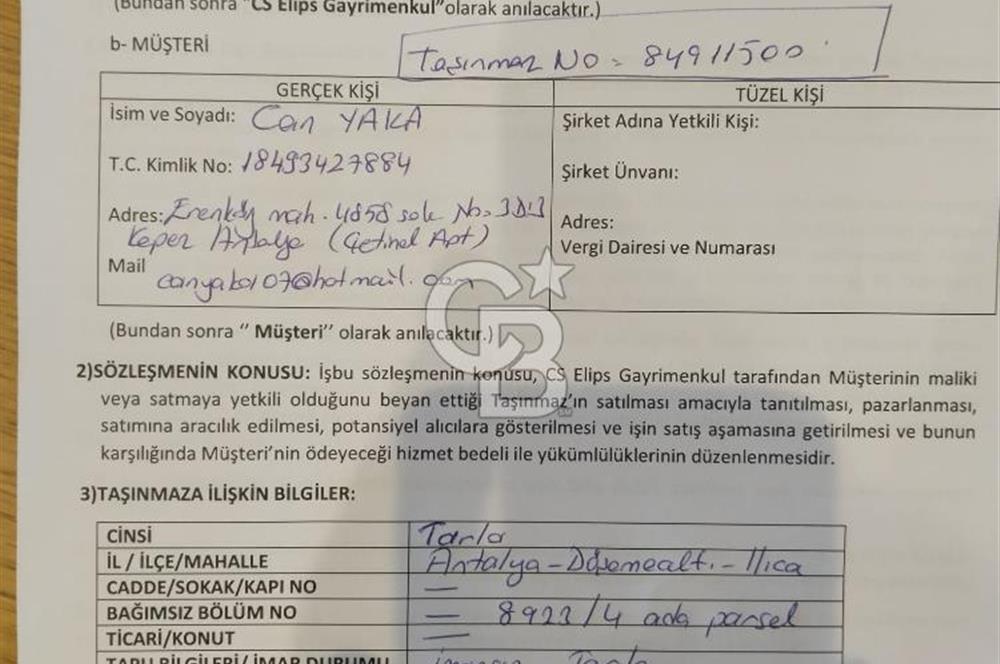 (Bundan sonra "CS Elips Gayrimenkul"olarak anılacaktır.)
b- MÜŞTERİ
Taşınmaz No = 84911500
GERÇEK KİŞİ
TÜZEL KİŞİ
İsim ve Soyadı: Can YAKA
Şirket Adına Yetkili Kişi:
T.C. Kimlik No: 18493427884
Şirket Ünvanı:
Adres: Erenköy mah. 4858 sok No=3D:3
Kepez Antalya (Çetinel Apt)
Adres:
Vergi Dairesi ve Numarası
Mail
(Bundan sonra " Müşteri" olarak anılacaktır.)
CB
2)SÖZLEŞMENİN KONUSU: İşbu sözleşmenin konusu, CS Elips Gayrimenkul tarafından Müşterinin maliki
veya satmaya yetkili olduğunu beyan ettiği Taşınmaz'ın satılması amacıyla tanıtılması, pazarlanması,
satımına aracılık edilmesi, potansiyel alıcılara gösterilmesi ve işin satış aşamasına getirilmesi ve bunun
karşılığında Müşteri'nin ödeyeceği hizmet bedeli ile yükümlülüklerinin düzenlenmesidir.
3)TAŞINMAZA İLİŞKİN BİLGİLER:
CİNSİ Tarla
İL / İLÇE/MAHALLE Antalya-Döşemealtı-Ilıca
CADDE/SOKAK/KAPI NO —
BAĞIMSIZ BÖLÜM NO — 8923/4 ada parsel
TİCARİ/KONUT —
TAPU BİLGİLERİ/ İMAR DURUMU İmarsız Tarla